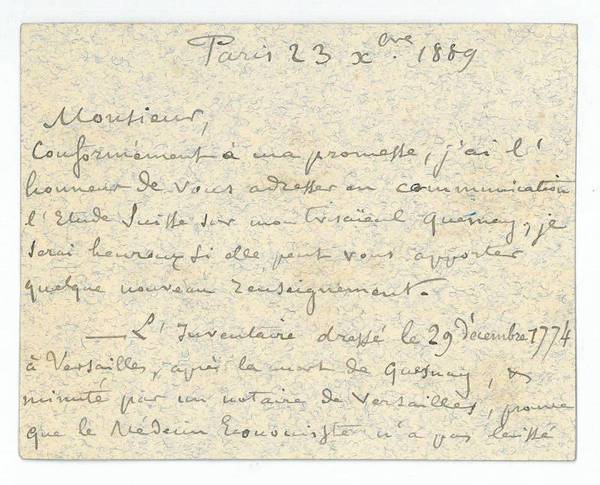 Paris 23 xbre. 1889
Monsieur,
Conformément à ma promesse, j'ai l'
honneur de vous adresser en communication
l'Etude Suisse sur mon trisaïeul Quesnay, je
serai heureux si elle peut vous apporter
quelque nouveau renseignement.
— L'Inventaire dressé le 29 décembre 1774
à Versailles, après la mort de Quesnay, &
minuté par un notaire de Versailles, prouve
que le Médecin Economiste n'a pas laissé